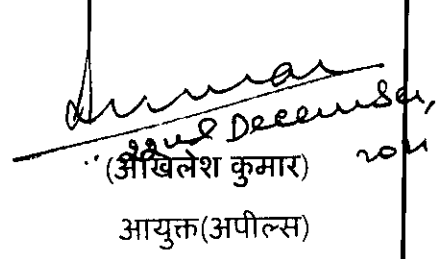 22nd December,
2021
(अखिलेश कुमार)
आयुक्त(अपील्स)